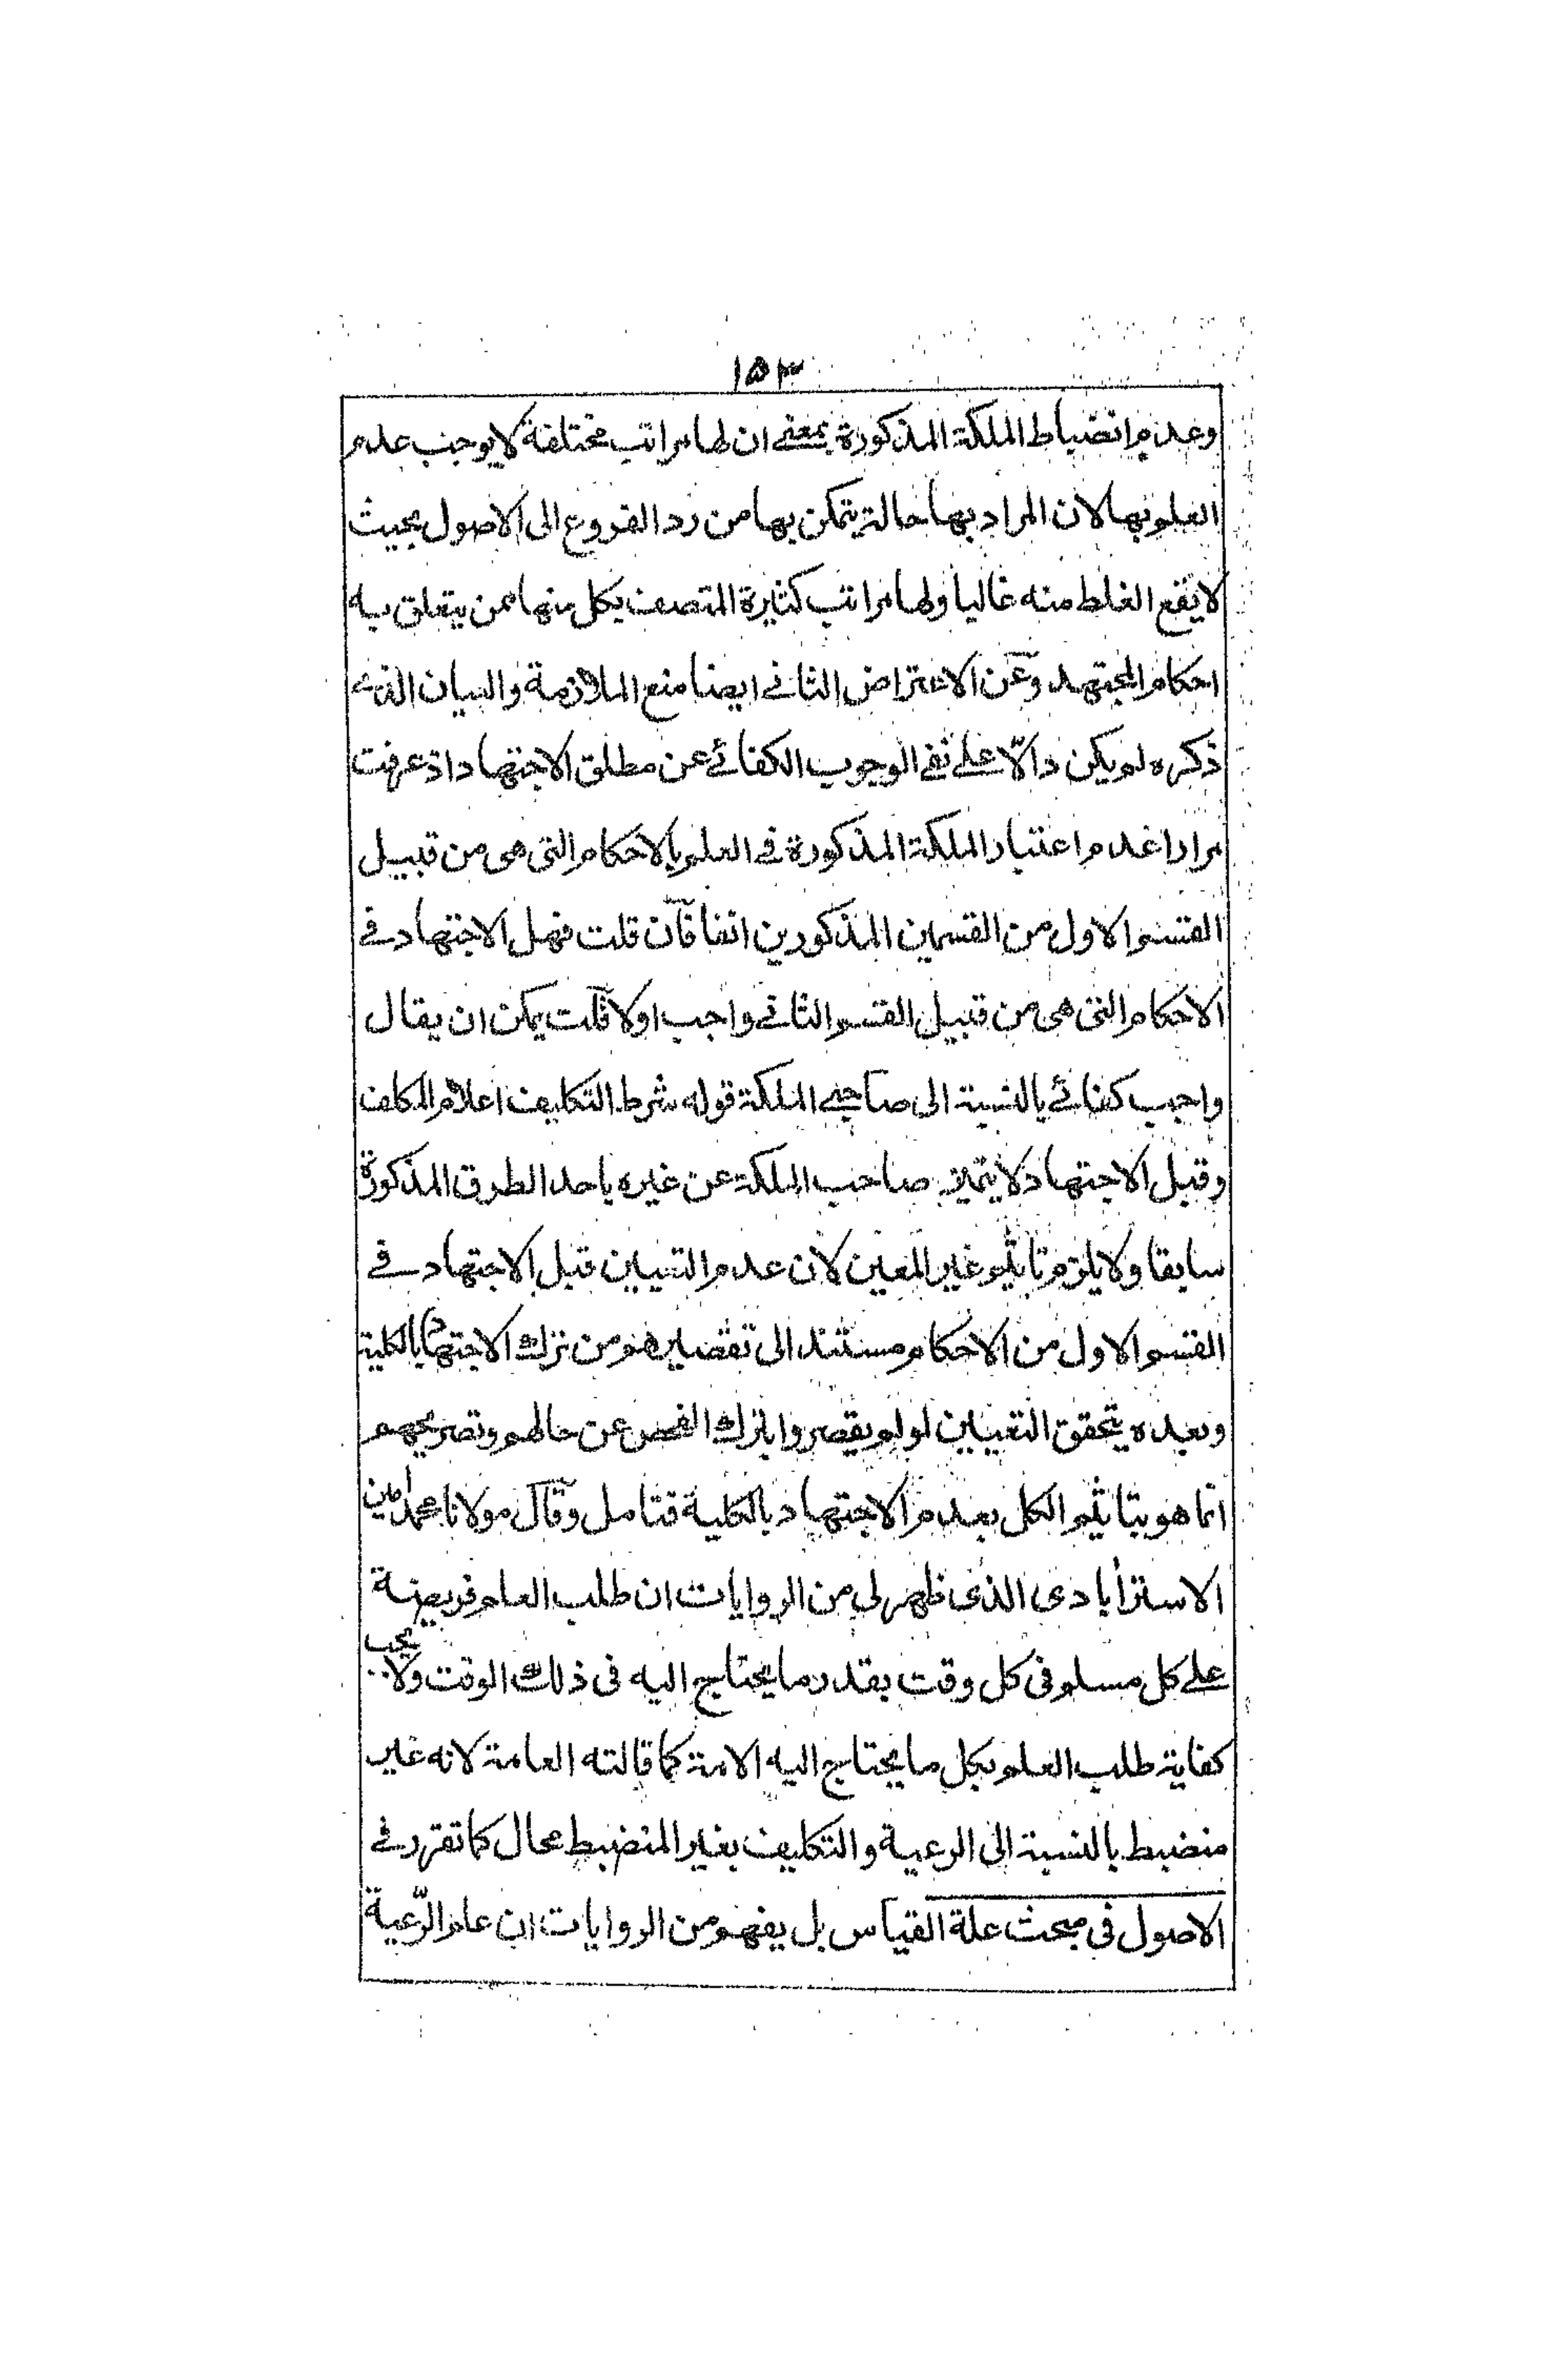 ١٥٣
وعدم انضباط الملكة المذكورة بمعنى ان لها مراتب مختلفة لا يوجب عدم
العلم بها لان المراد بها حالة يتمكن بها من رد الفروع الى الاصول بحيث
لا يقع الغلط منه غالبا ولها مراتب كثيرة المتصف بكل منها ممن يتعلق به
احكام المجتهد وعن الاعتراض الثاني ايضا منع الملازمة والبيان الذي
ذكره لم يكن دالّا على نفي الوجوب الكفائي عن مطلق الاجتهاد اذ عرفت
مرارا عدم اعتبار الملكة المذكورة في العلم بالاحكام التي هي من قبيل
القسم الاول من القسمين المذكورين انفا فان قلت فهل الاجتهاد في
الاحكام التي هي من قبيل القسم الثاني واجب اولا قلت يمكن ان يقال
واجب كفائي بالنسبة الى صاحبي الملكة قوله شرط التكليف اعلام المكلف
وقبل الاجتهاد لا يتميز صاحب الملكة عن غيره باحد الطرق المذكورة
سابقا ولا يلزم تاثيم غير المعين لان عدم التعيين قبل الاجتهاد في
القسم الاول من الاحكام مستند الى تقصيرهم من ترك الاجتهاد بالكلية
وبعده يتحقق التعيين لو لم يقصروا بترك الفحص عن حالهم وتصريحهم
انما هو بتاثيم الكل بعدم الاجتهاد بالكلية فتامل وقال مولانا محمد امين
الاسترأبادى الذى ظهر لي من الروايات ان طلب العلم فريضة
على كل مسلم فى كل وقت بقدر ما يحتاج اليه فى ذلك الوقت ولا يجب
كفاية طلب العلم بكل ما يحتاج اليه الامة كما قالته العامة لانه غير
منضبط بالنسبة الى الرعية والتكليف بغير المنضبط محال كما تقرر في
الاصول فى مبحث علة القياس بل يفهم من الروايات ان علم الرّعية